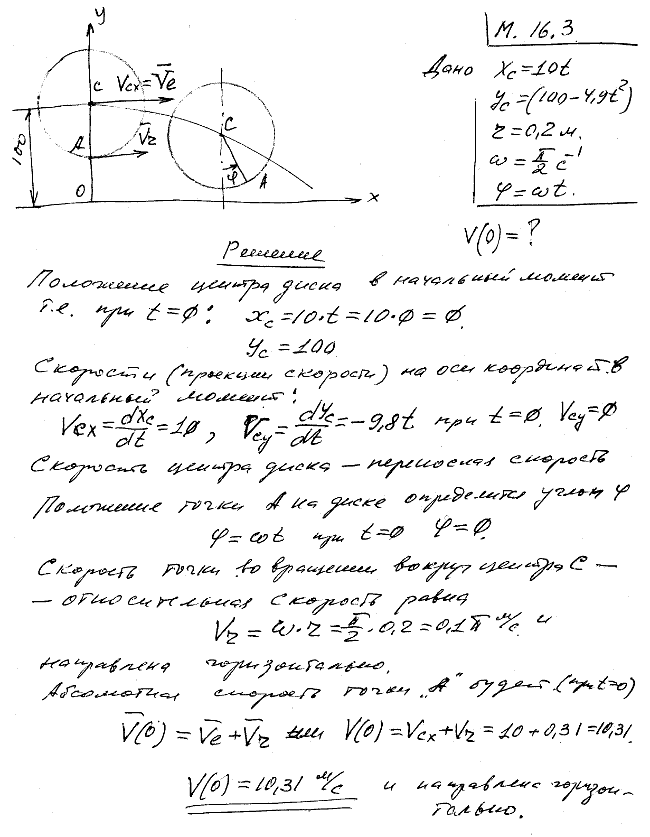 y
М. 16.3
C
V̄cx=V̄e
Дано
Xc=10t
yc=(100-4,9t²)
100
C
r=0,2 м.
A
V̄r
φ
A
ω=π/2 c⁻¹
O
x
φ=ωt.
V(0)=?
Решение
Положение центра диска в начальный момент
т.е. при t=0: xc=10·t=10·0=0.
yc=100
Скорости (проекции скорости) на оси координат. в
начальный момент:
Vcx=dxc/dt=10, Vcy=dyc/dt=-9,8t при t=0. Vcy=0
Скорость центра диска – переносная скорость
Положение точки A на диске определится углом φ
φ=ωt при t=0 φ=0.
Скорость точки во вращении вокруг центра C –
– относительная скорость равна
Vr=ω·r=π/2·0,2=0,1π м/с и
направлена горизонтально.
Абсолютная скорость точки „A" будет (при t=0)
V̄(0)=V̄e+V̄r или V(0)=Vcx+Vr=10+0,31=10,31.
V(0)=10,31 м/с и направлена горизон-
тально.